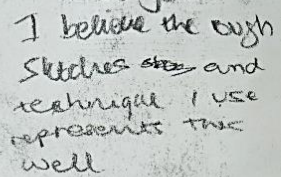 I believe the rough
sketches and
technique I use
represents this
well